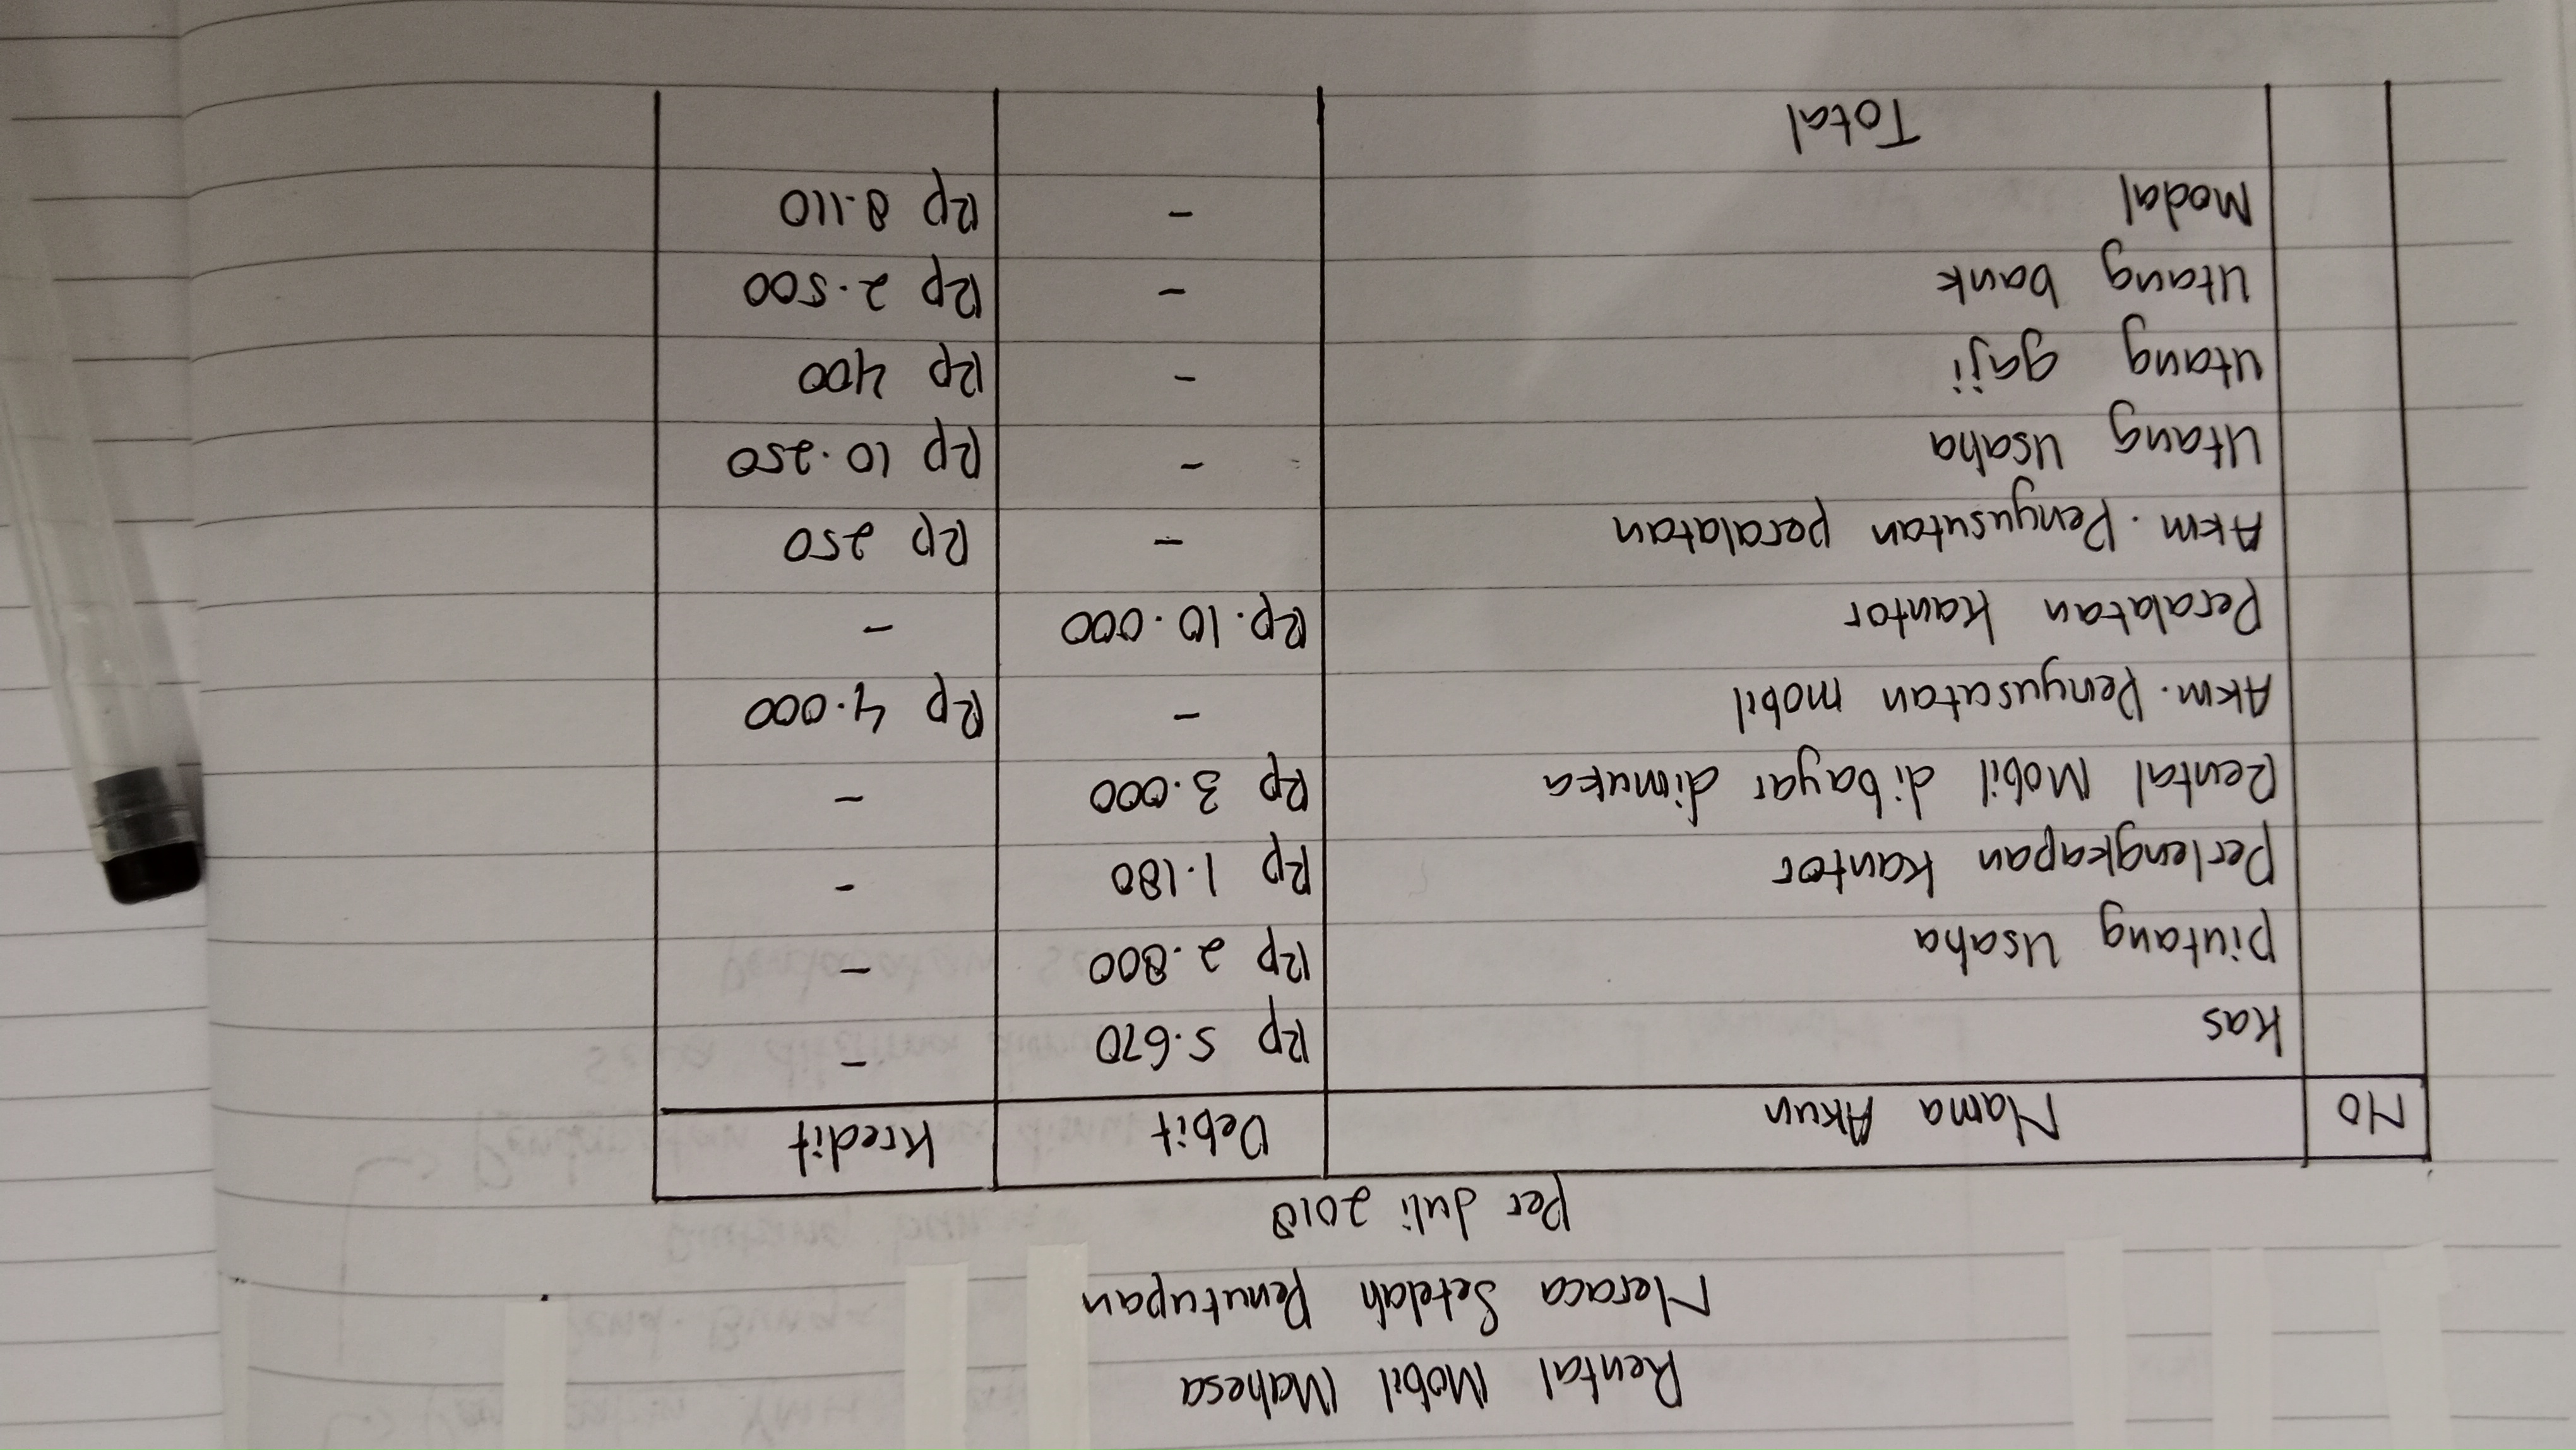 Rental Mobil Mahesa
Neraca Setelah Penutupan
Per Juli 2018
No Nama Akun Debit Kredit
Kas Rp 5.670 -
Piutang Usaha Rp 2.800 -
Perlengkapan Kantor Rp 1.180 -
Rental Mobil dibayar dimuka Rp 3.000 -
Akm. Penyusutan mobil - Rp 4.000
Peralatan Kantor Rp. 10.000 -
Akm. Penyusutan peralatan - Rp 250
Utang Usaha - Rp 10.250
Utang gaji - Rp 400
Utang bank - Rp 2.500
Modal - Rp 8.110
Total